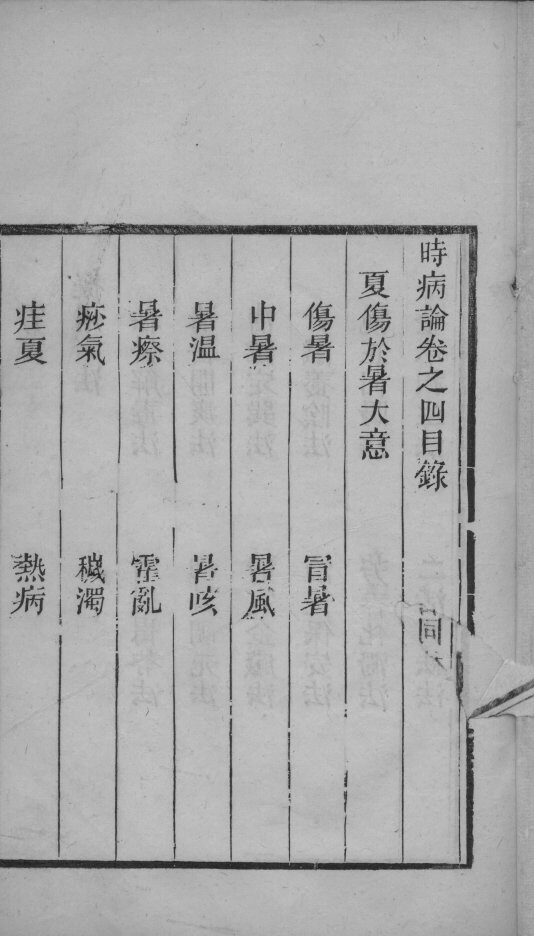 時病論卷之四目錄
夏傷於暑大意
傷暑 冒暑
中暑 暑風
暑溫 暑咳
暑瘵 霍亂
痧氣 穢濁
疰夏 熱病